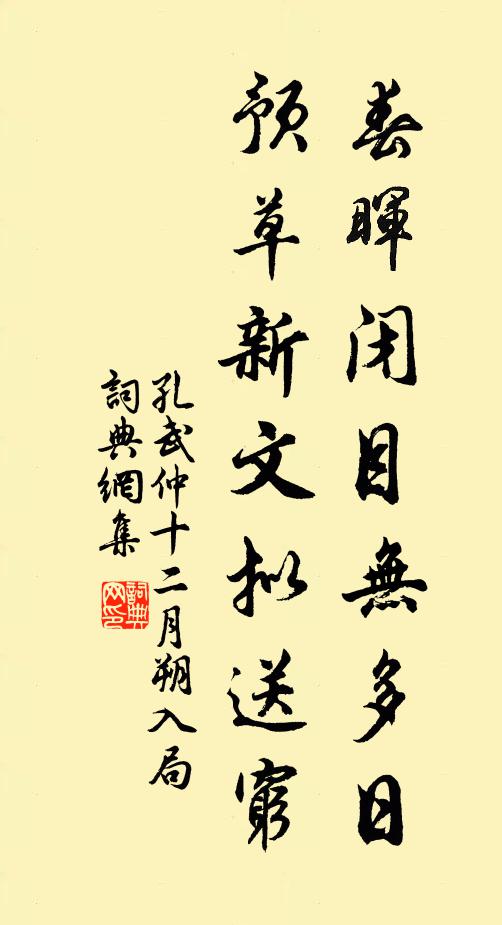 春暉闭目無多日
预草新文拟送窮
孔武仲十二月朔入局
詞典網集
詞典網印